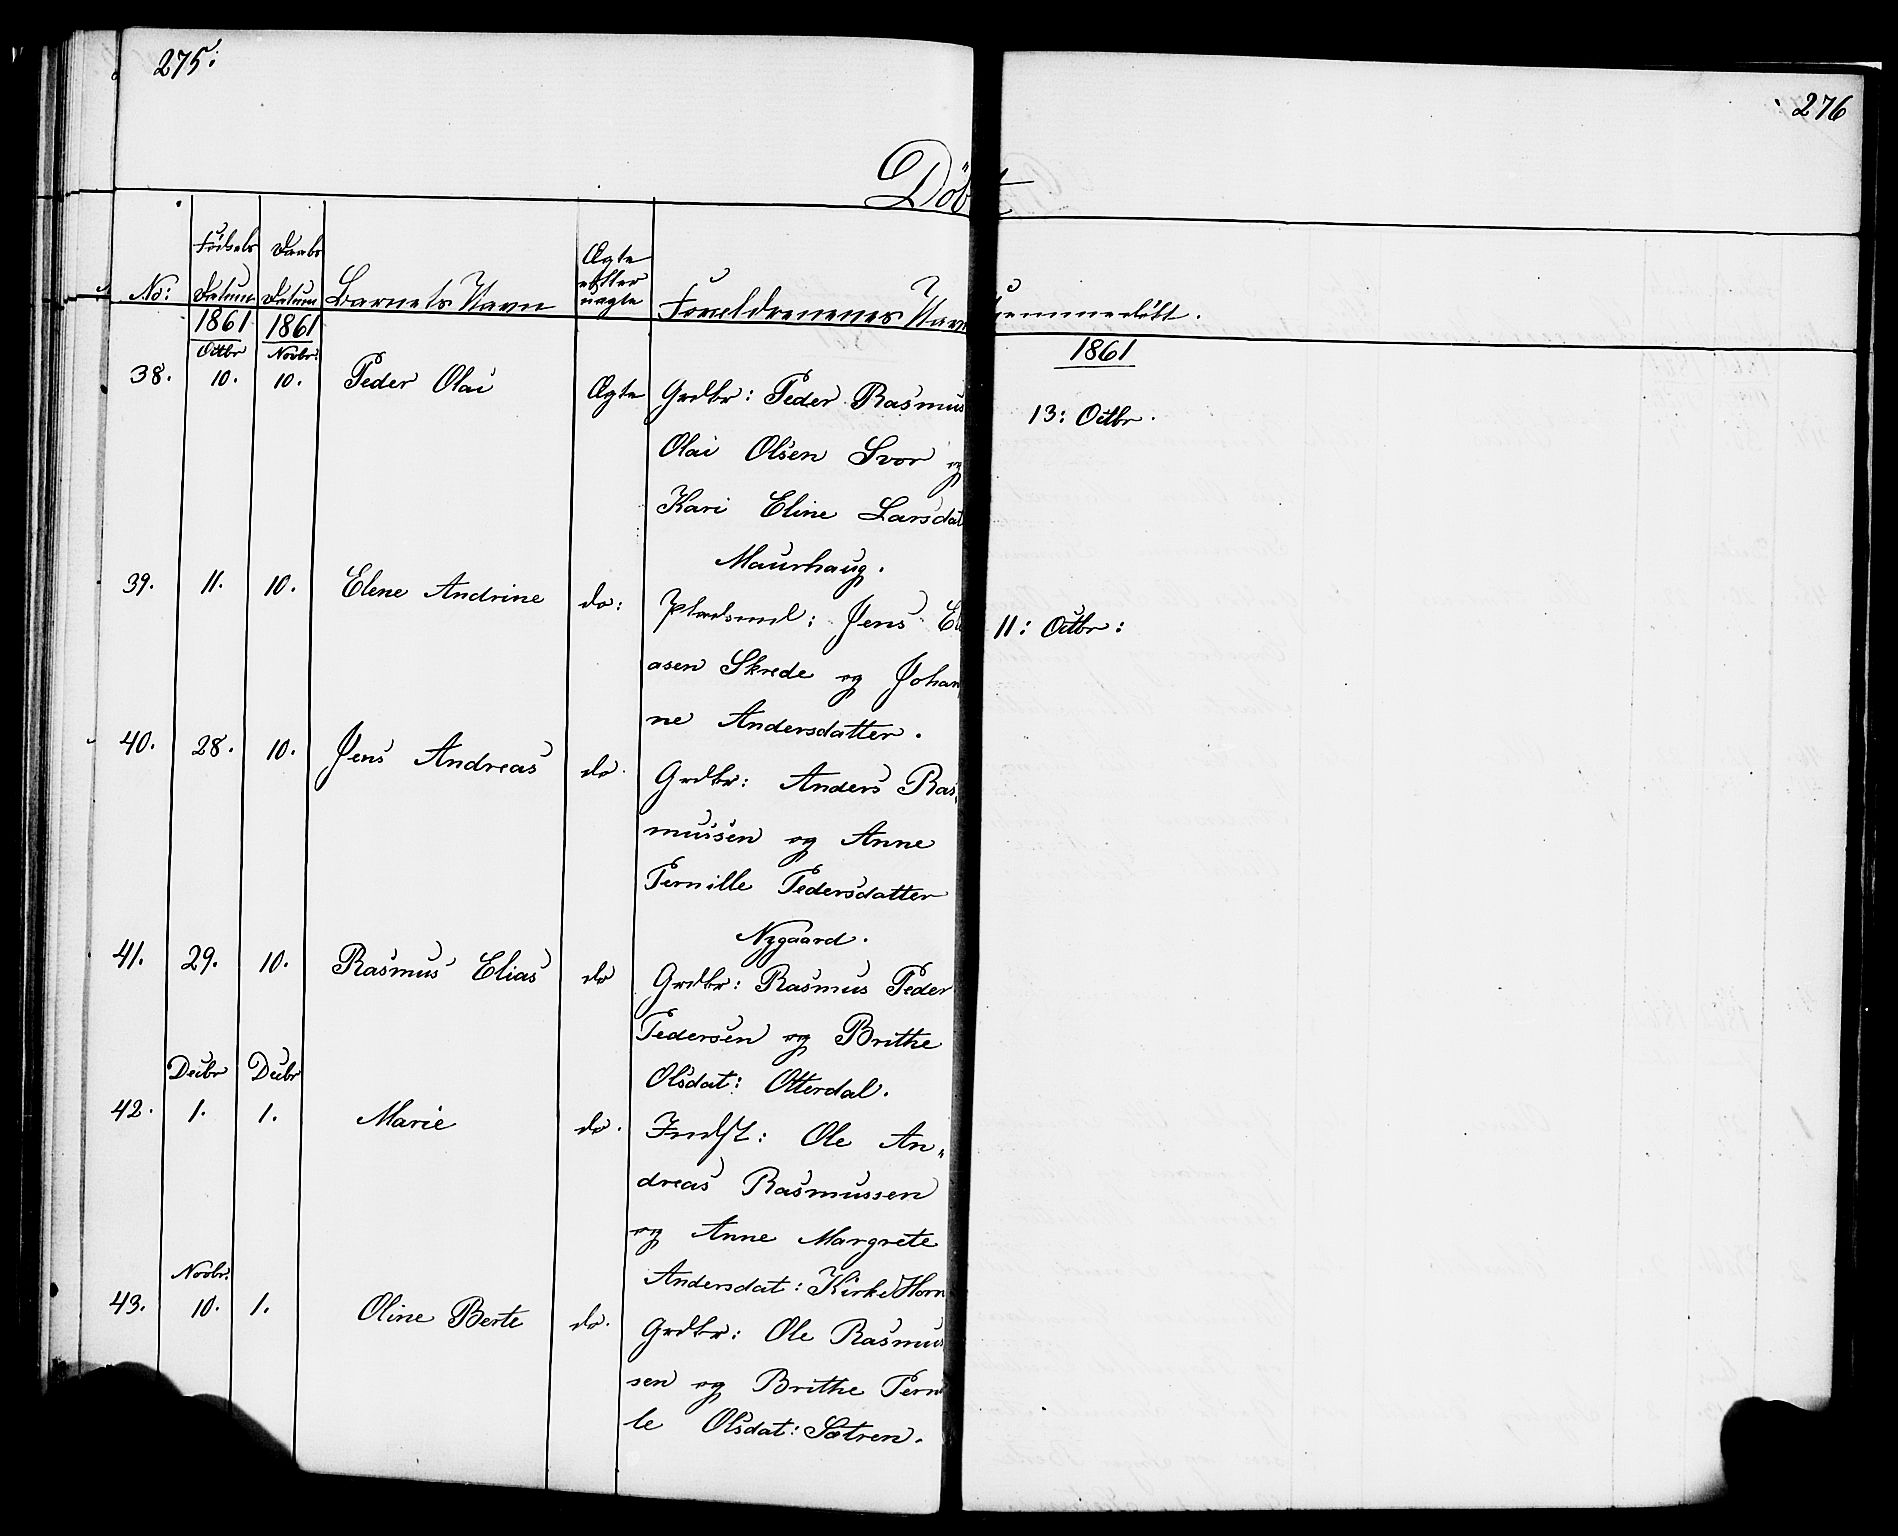 275:
276
Döbt
No:
Födsels Datum
Daabs Datum
Barnets Navn
Ægte eller uægte
Forældrenenes Navn
Hjemmedöbt.
1861 1861 1861
Octbr Novbr:
38. 10. 10. Peder Olai Ægte Grdbr: Peder Rasmus 13: Octbr.
Olai Olsen Svor og
Kari Eline Larsdat
Maurhaug.
39. 11. 10. Elene Andrine do: Pladsmd: Jens Eli 11: Octbr:
asen Skrede og Johan
ne Andersdatter.
40. 28. 10. Jens Andreas do. Grdbr: Anders Ras,
mussen og Anne
Pernille Pedersdatter
Nygaard.
41. 29. 10. Rasmus Elias do Grdbr: Rasmus Peder
Pedersen og Brithe
Olsdat: Otterdal.
Decbr Decbr
42. 1. 1. Marie do. Indst: Ole An„
dreas Rasmussen
og Anne Margrete
Andersdat: KirkeHorn
Novbr:
43. 10. 1. Oline Berte do. Grdbr: Ole Rasmus
sen og Brithe Pernil
le Olsdat: Sætren.